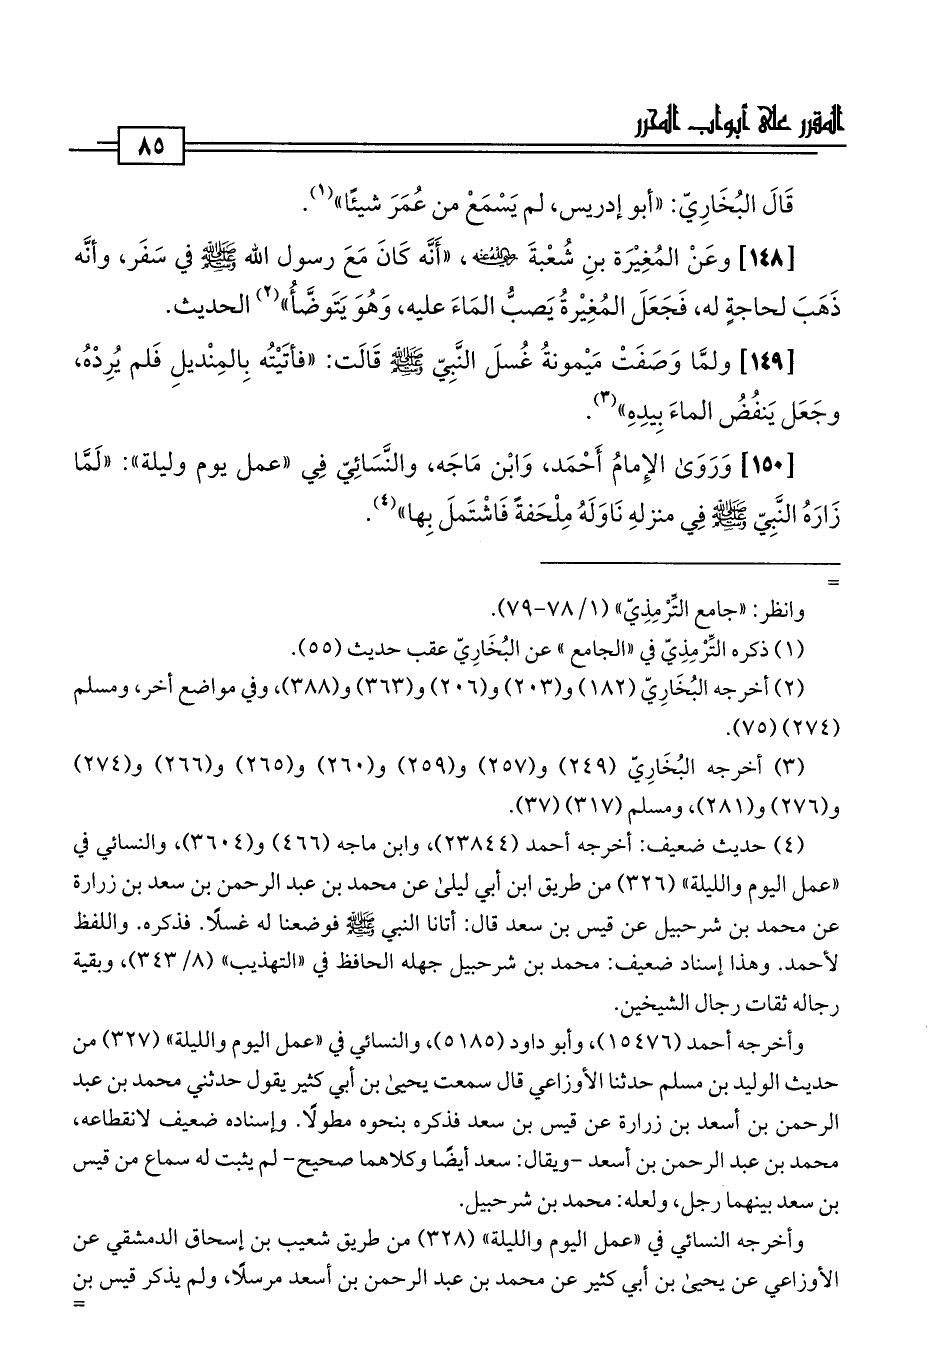 المقرر على أبواب المحرر
٨٥
قَالَ البُخَارِيّ: «أبو إدريس، لم يَسْمَعْ من عُمَرَ شيئًا»(١).
[١٤٨] وعَنْ المُغِيْرَة بنِ شُعْبَةَ رضي الله عنه، «أَنَّه كَانَ مَعَ رسول الله ﷺ في سَفَر، وأنَّه
ذَهَبَ لحاجةٍ له، فَجَعَلَ المُغِيْرةُ يَصبُّ الماءَ عليه، وَهُوَ يَتَوضَّأُ»(٢) الحديث.
[١٤٩] ولمَّا وَصَفَتْ مَيْمونةُ غُسلَ النَّبيّ ﷺ قَالَت: «فأتَيْتُه بِالمِنْديلِ فَلم يُرِدْهُ،
وجَعَل يَنفُضُ الماءَ بِيدِهِ»(٣).
[١٥٠] وَرَوَىٰ الإمامُ أَحْمَد، وَابْن مَاجَه، والنَّسَائِيّ فِي «عمل يوم وليلة»: «لَمَّا
زَارَهُ النَّبيّ ﷺ فِي منزلهِ نَاوَلَهُ مِلْحَفةً فَاشْتملَ بِها»(٤).
=
وانظر: «جامع التِّرْمِذِيّ» (١/ ٧٨-٧٩).
(١) ذكره التِّرْمِذِيّ في «الجامع » عن البُخَارِيّ عقب حديث (٥٥).
(٢) أخرجه البُخَارِيّ (١٨٢) و(٢٠٣) و(٢٠٦) و(٣٦٣) و(٣٨٨)، وفي مواضع أخر، ومسلم
(٢٧٤) (٧٥).
(٣) أخرجه البُخَارِيّ (٢٤٩) و(٢٥٧) و(٢٥٩) و(٢٦٠) و(٢٦٥) و(٢٦٦) و(٢٧٤)
و(٢٧٦) و(٢٨١)، ومسلم (٣١٧) (٣٧).
(٤) حديث ضعيف: أخرجه أحمد (٢٣٨٤٤)، وابن ماجه (٤٦٦) و(٣٦٠٤)، والنسائي في
«عمل اليوم والليلة» (٣٢٦) من طريق ابن أبي ليلىٰ عن محمد بن عبد الرحمن بن سعد بن زرارة
عن محمد بن شرحبيل عن قيس بن سعد قال: أتانا النبي ﷺ فوضعنا له غسلًا. فذكره. واللفظ
لأحمد. وهذا إسناد ضعيف: محمد بن شرحبيل جهله الحافظ في «التهذيب» (٨/ ٣٤٣)، وبقية
رجاله ثقات رجال الشيخين.
وأخرجه أحمد (١٥٤٧٦)، وأبو داود (٥١٨٥)، والنسائي في «عمل اليوم والليلة» (٣٢٧) من
حديث الوليد بن مسلم حدثنا الأوزاعي قال سمعت يحيىٰ بن أبي كثير يقول حدثني محمد بن عبد
الرحمن بن أسعد بن زرارة عن قيس بن سعد فذكره بنحوه مطولًا. وإسناده ضعيف لانقطاعه،
محمد بن عبد الرحمن بن أسعد -ويقال: سعد أيضًا وكلاهما صحيح- لم يثبت له سماع من قيس
بن سعد بينهما رجل، ولعله: محمد بن شرحبيل.
وأخرجه النسائي في «عمل اليوم والليلة» (٣٢٨) من طريق شعيب بن إسحاق الدمشقي عن
الأوزاعي عن يحيىٰ بن أبي كثير عن محمد بن عبد الرحمن بن أسعد مرسلًا، ولم يذكر قيس بن
=